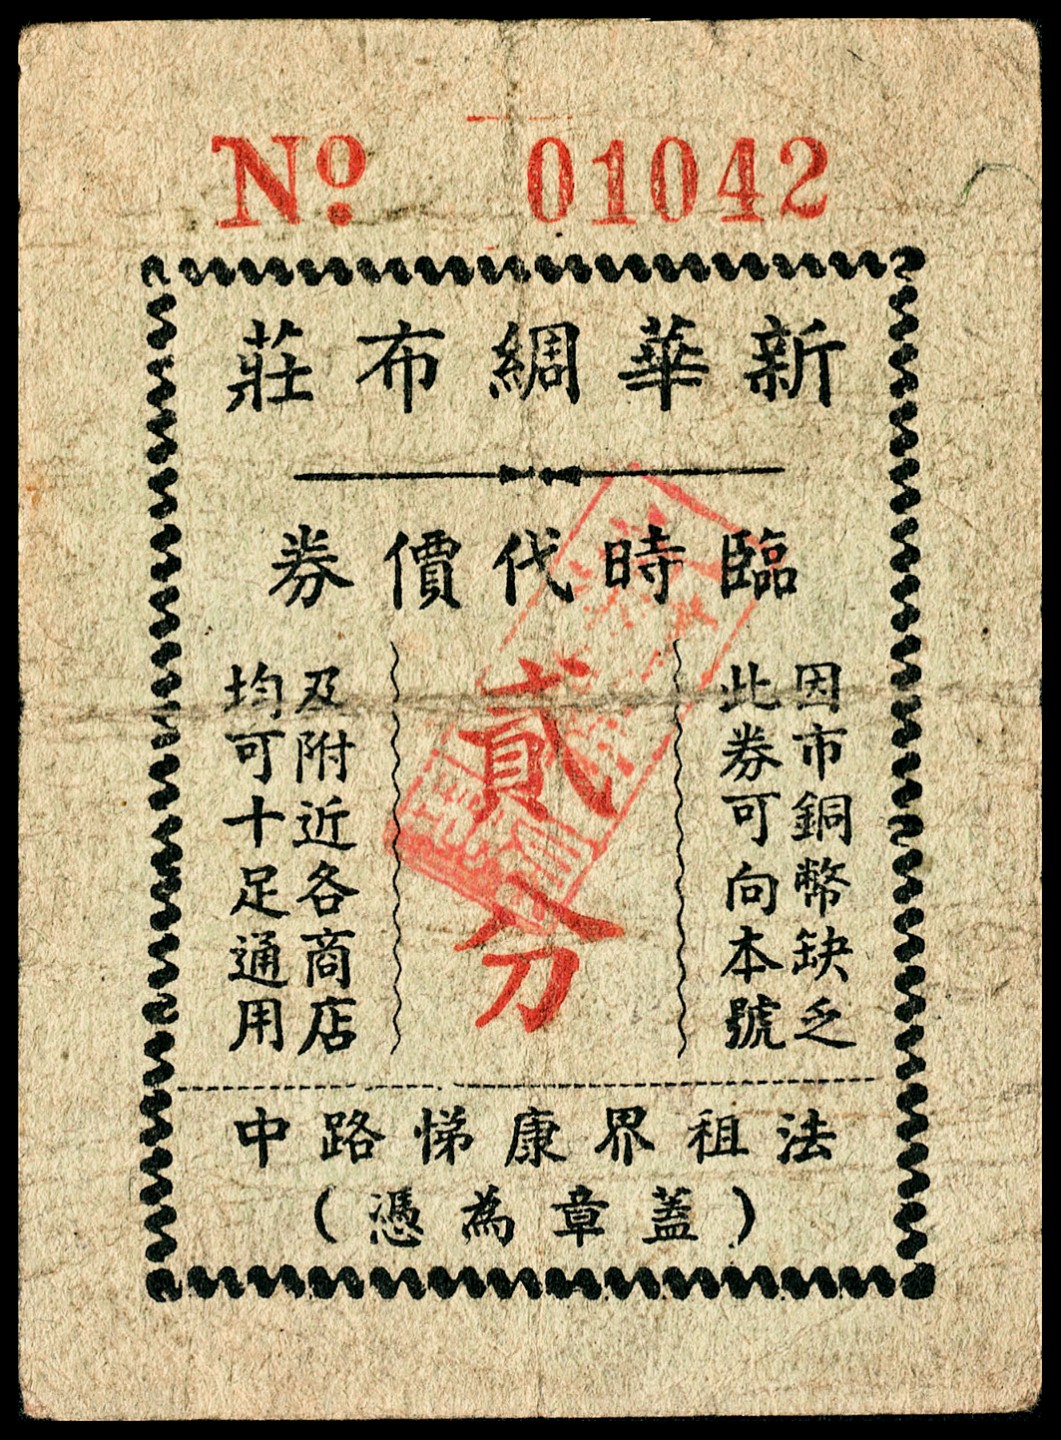 No. 01042
新華綢布莊
臨時代價券
因市銅幣缺乏
此券可向本號
貳分
及附近各商店
均可十足通用
法租界康悌路中
(蓋章為憑)